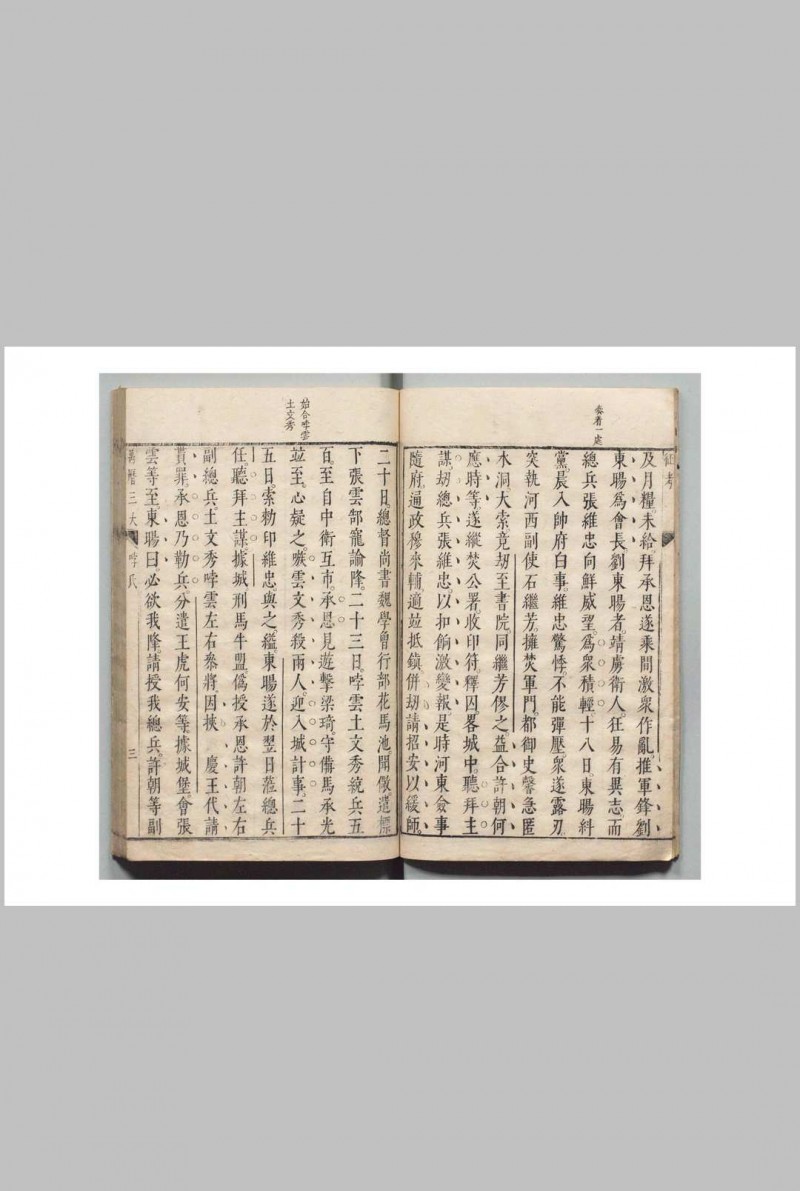 叅看一處
及月糧未給拜承恩遂乘間激衆作亂推軍鋒劉
東暘爲會長劉東暘者靖虜衛人狂易有異志而
總兵張維忠向鮮威望爲衆積輕十八日東暘糾
黨晨入帥府白事維忠驚悸不能彈壓衆遂露刃
突執河西副使石繼芳擁焚軍門都御史馨急匿
水洞大索竟劫至書院同繼芳僇之益合許朝何
應時等遂縱焚公署收印符釋囚畧城中聽拜主
謀劫總兵張維忠以扣餉激變報是時河東僉事
隨府通政穆來輔適竝抵鎮併劫請招安以緩師
始合哱雲
土文秀
二十日總督尚書魏學曾行部花馬池聞儆遣標
下張雲郜寵諭降二十三日哱雲土文秀統兵五
百至自中衛互市承恩見遊擊梁琦守備馬承光
竝至心疑之嗾雲文秀殺兩人迎入城計事二十
五日索勑印維忠與之縊東暘遂於翌日蒞總兵
任聽拜主謀據城刑馬牛盟僞授承恩許朝左右
副總兵土文秀哱雲左右叅將因挾 慶王代請
貰罪承恩乃勒兵分遣王虎何安等據城堡會張
雲等至東暘曰必欲我降請授我總兵許朝等副
萬曆三大 哱氏 三